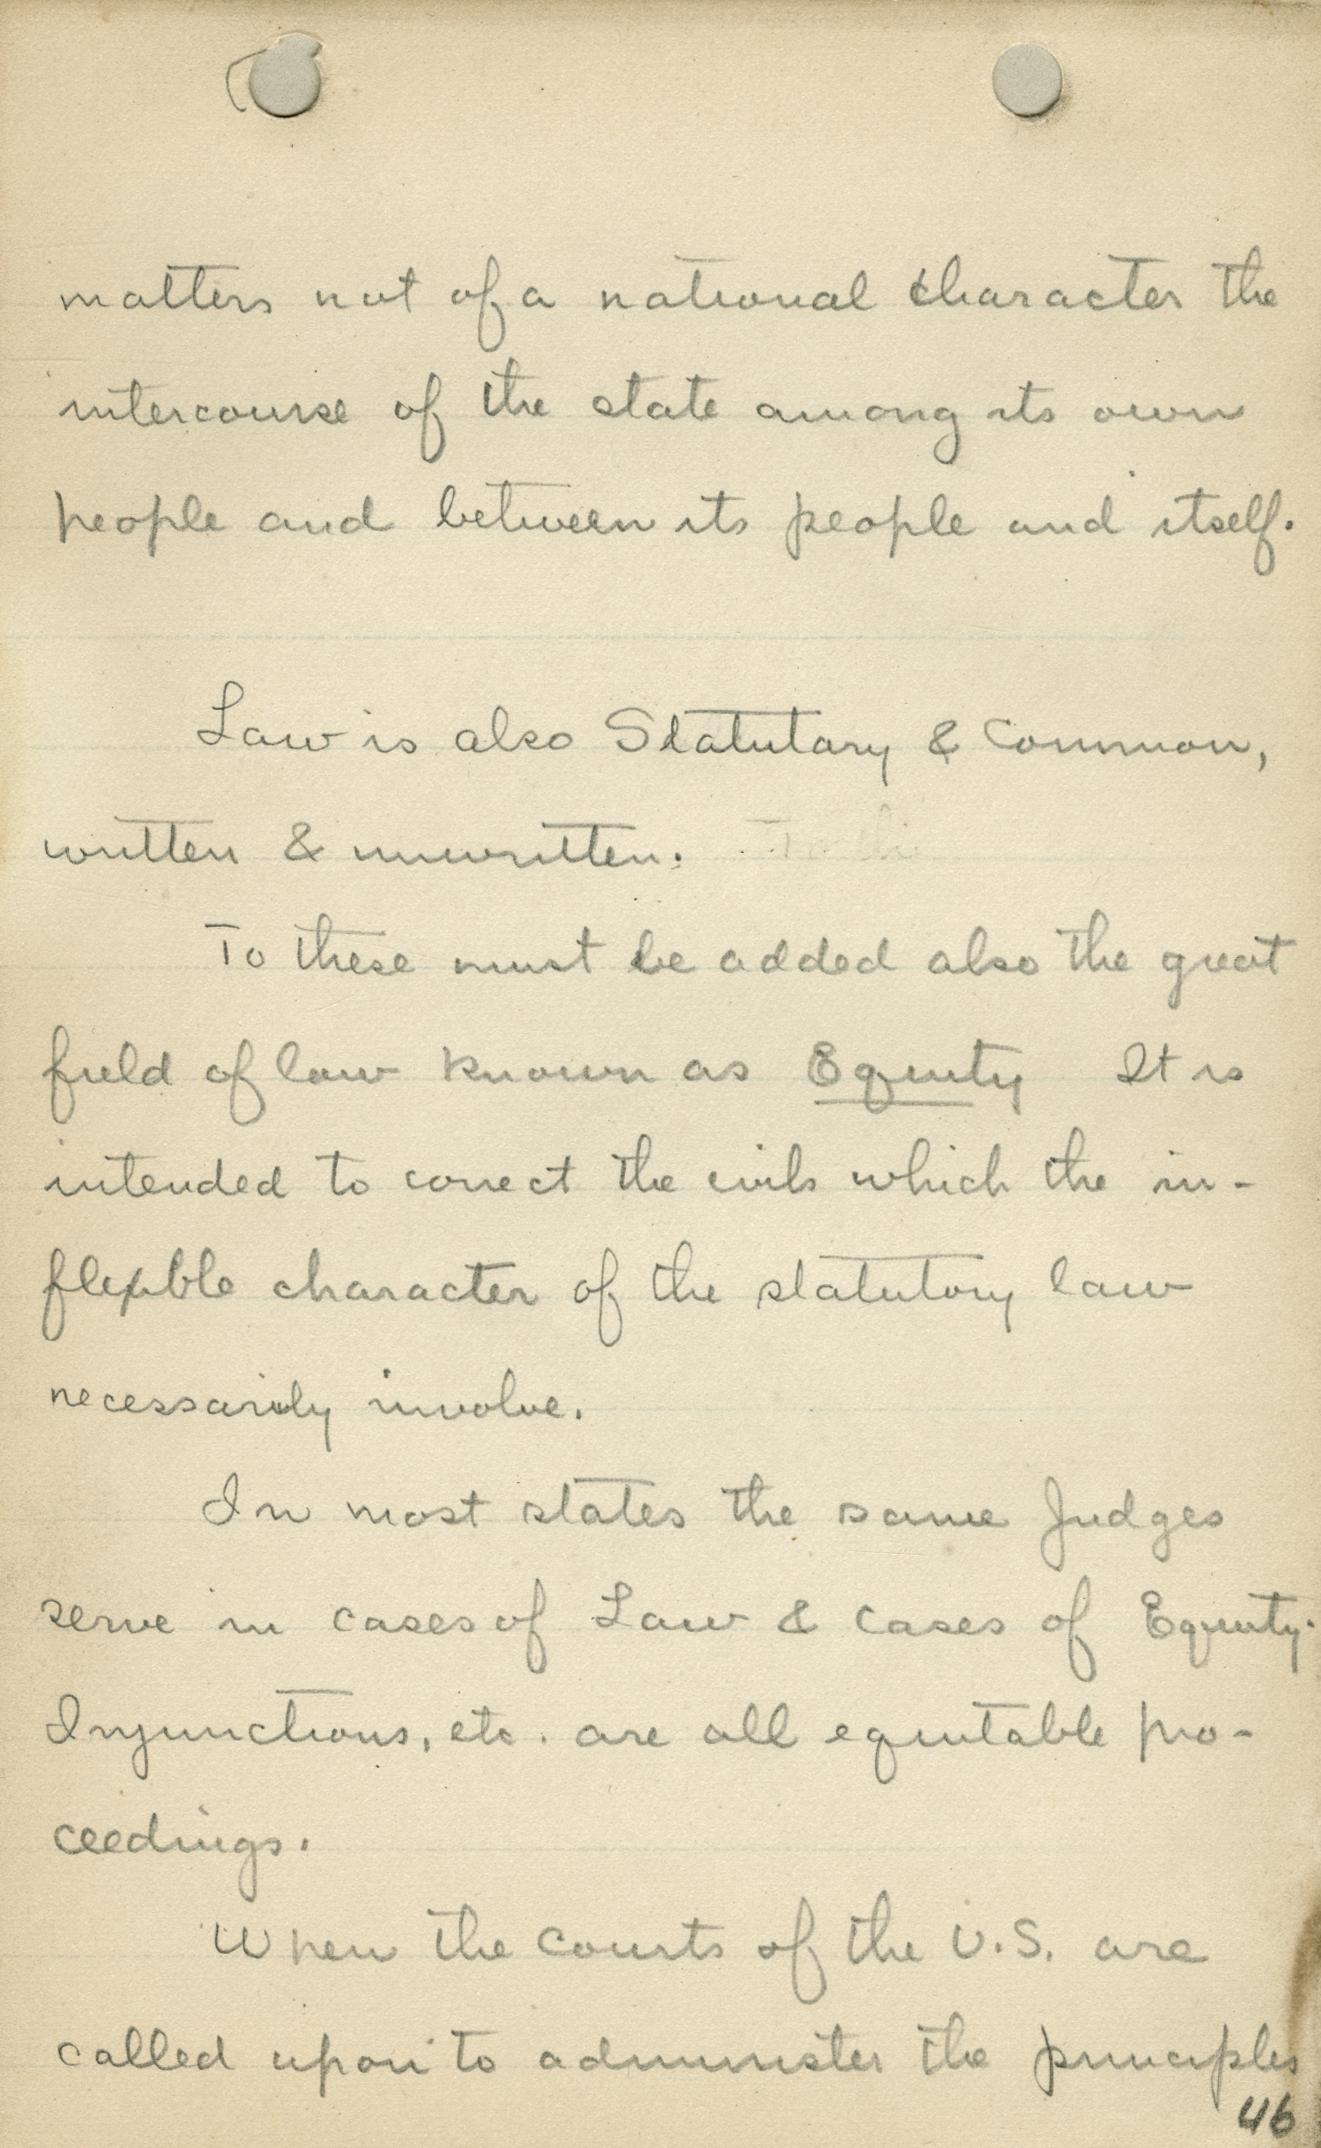 matters not of a national character the
intercourse of the state among its own
people and between its people and itself.
Law is also Statutary & Common,
written & unwritten.
To these must be added also the great
field of law known as Equity It is
intended to correct the evils which the in-
flexible character of the statutory law
necessarily involve.
In most states the same Judges
serve in cases of Law & cases of Equity.
Injunctions, etc. are all equitable pro-
ceedings.
When the Courts of the U.S. are
called upon to administer the principles
46